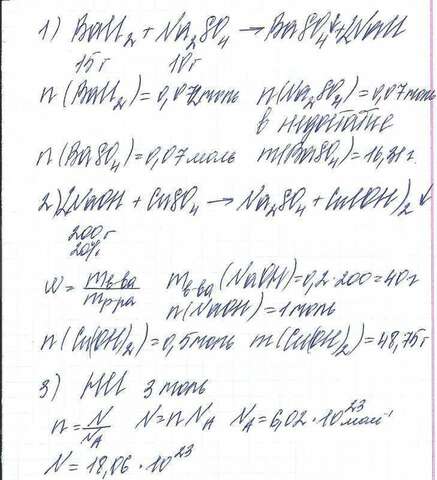 1) BaCl₂ + Na₂SO₄ → BaSO₄↓ + 2NaCl
15 г 10 г
n(BaCl₂) = 0,072 моль n(Na₂SO₄) = 0,07 моль
в недостатке
n(BaSO₄) = 0,07 моль m(BaSO₄) = 16,31 г.
2) 2NaOH + CuSO₄ → Na₂SO₄ + Cu(OH)₂↓
200 г
20%
w = mв-ва/mр-ра mв-ва(NaOH) = 0,2 · 200 = 40 г
n(NaOH) = 1 моль
n(Cu(OH)₂) = 0,5 моль m(Cu(OH)₂) = 48,75 г
3) HCl 3 моль
n = N/NA N = n NA NA = 6,02 · 10²³ моль⁻¹
N = 18,06 · 10²³